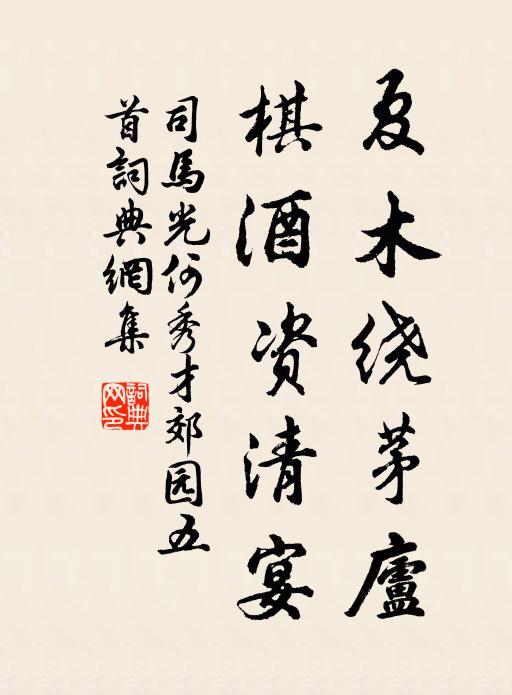 夏木绕茅廬
棋酒资清宴
司馬光何秀才郊园五
首詞典網集
詞典网印